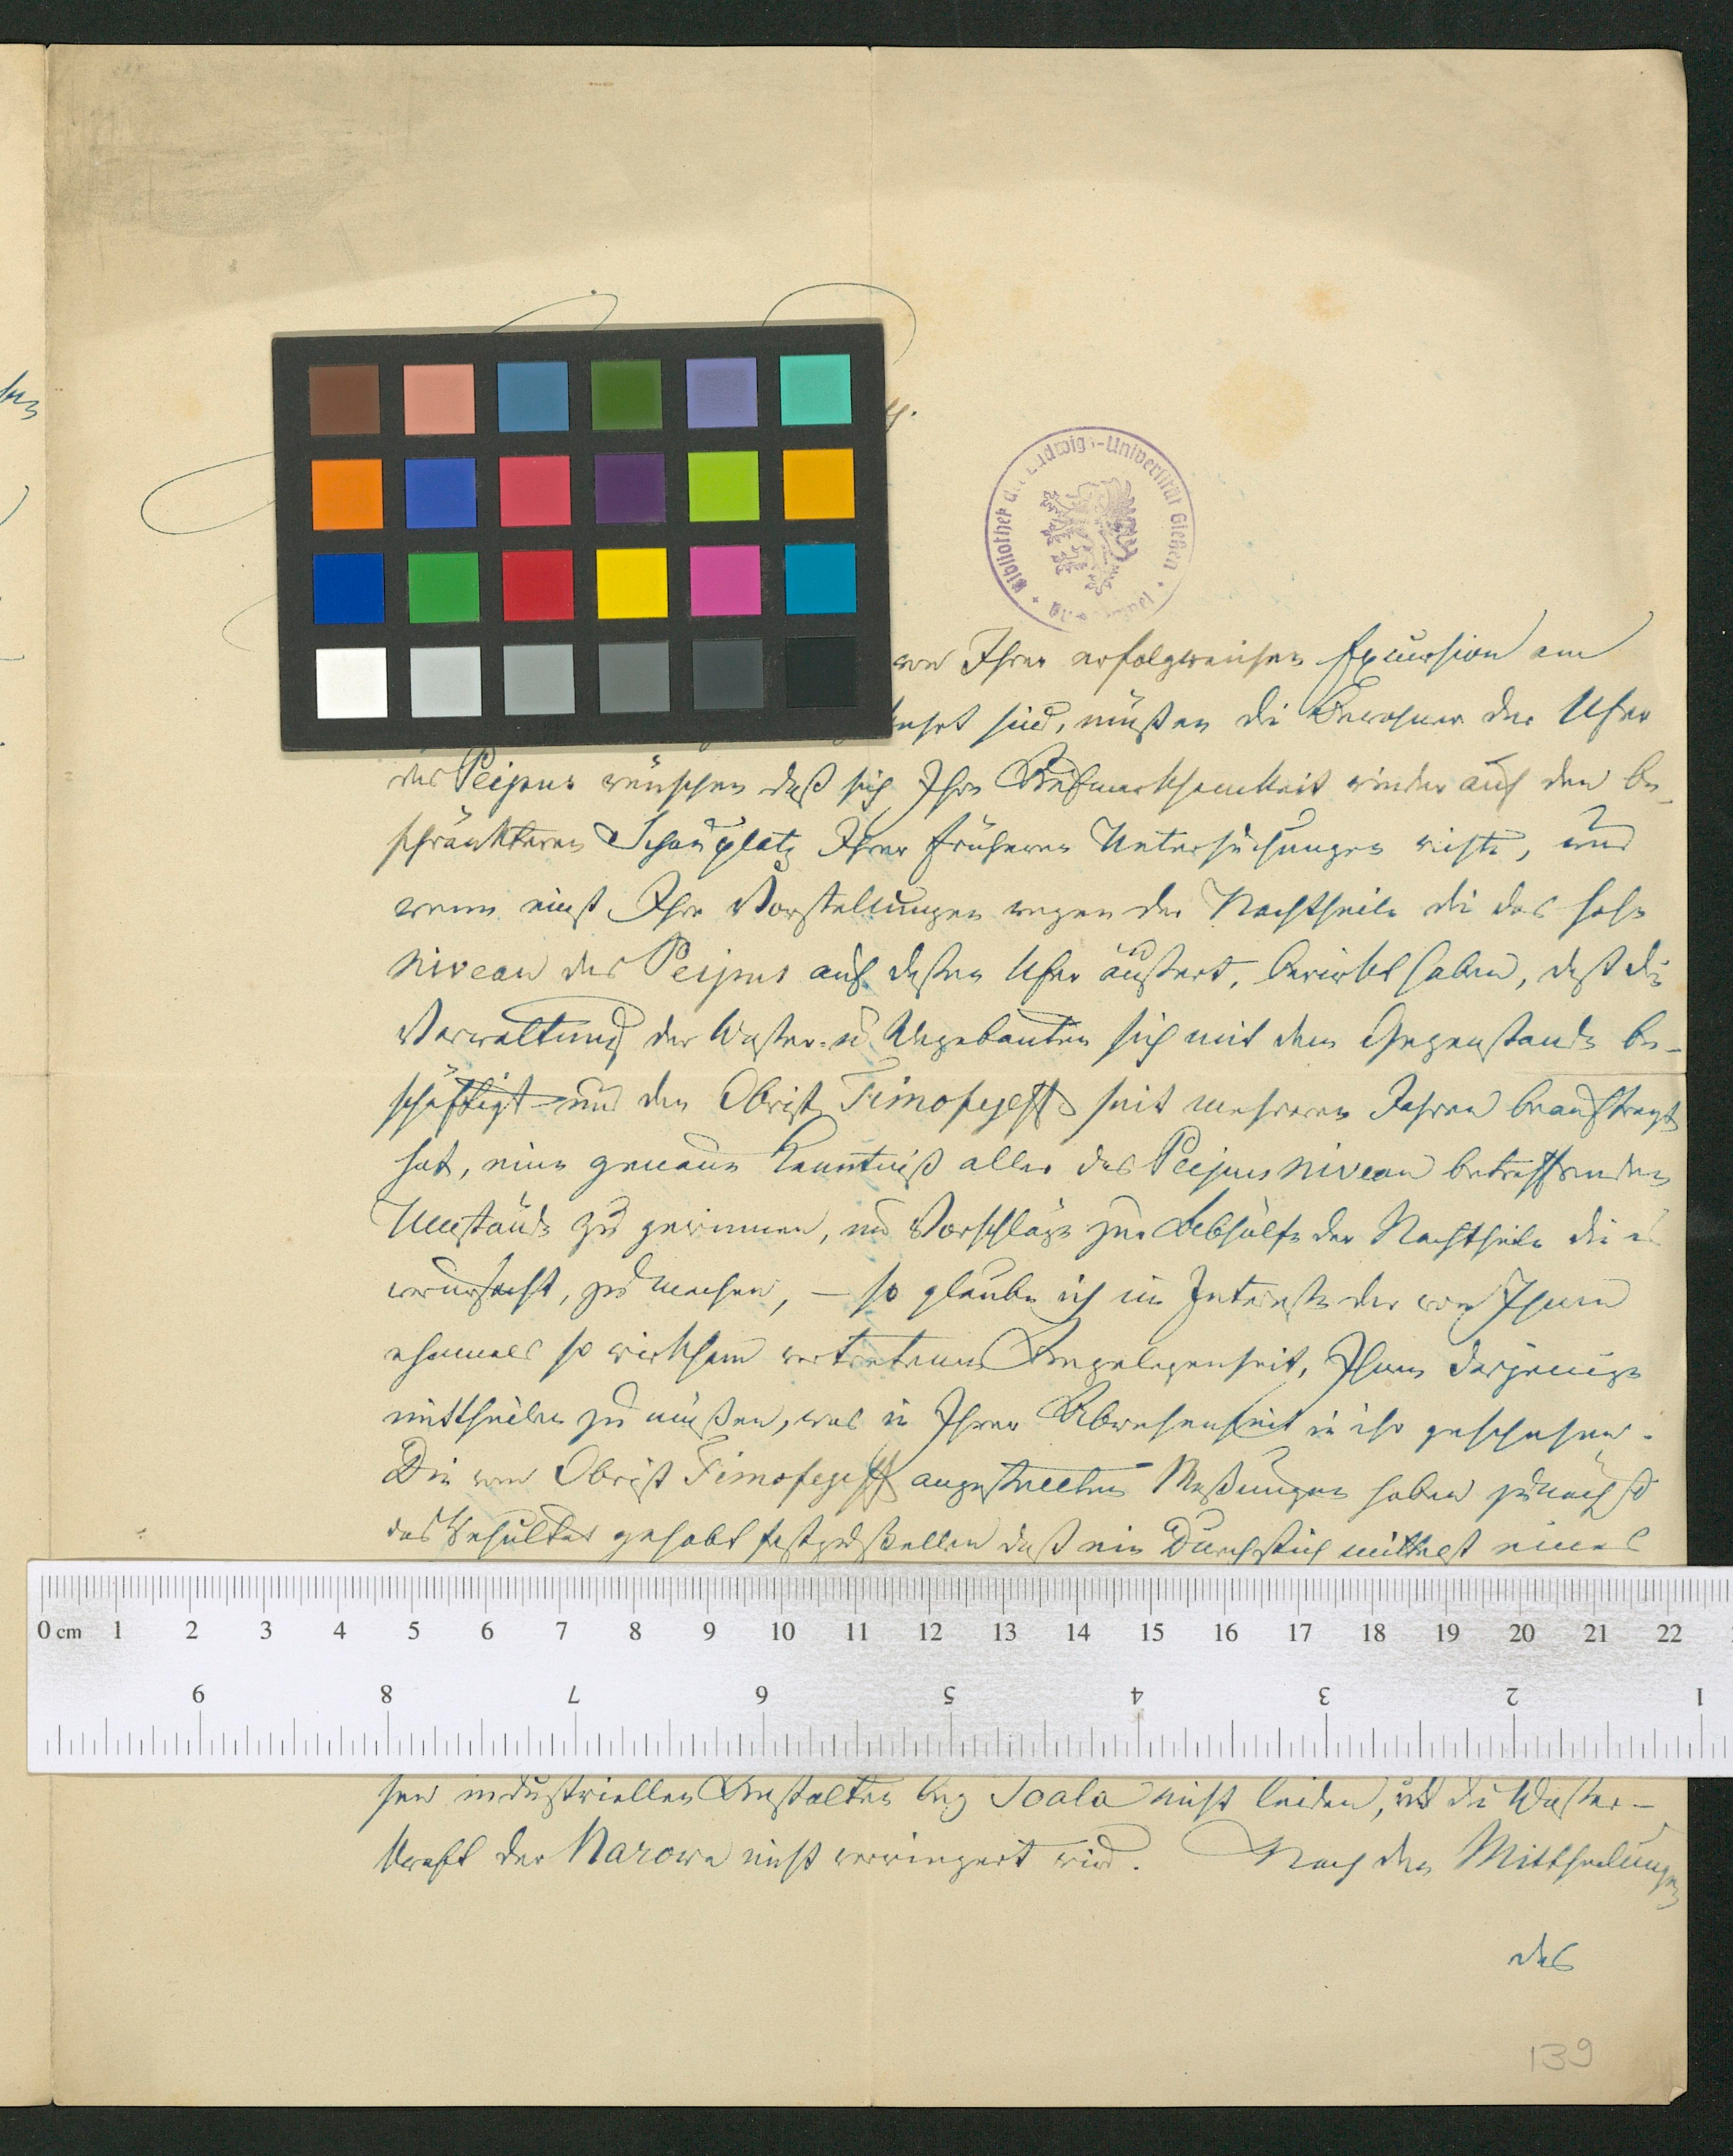 Bibliothek der Ludwigs-Universität Gießen
von Ihrer erfolgreichen Excursion am
kehrt sind, müßen die Bewohner der Ufer
des Peipus wünschen daß sich Ihre Aufmerksamkeit wieder auf den be-
schränkteren Schauplatz Ihrer früheren Untersuchungen richte, und
wenn einst Ihre Vorstellungen wegen der Nachtheile die das hohe
Niveau des Peipus auf deßen Ufer äußert, bewirkt haben, daß die
Verwaltung der Waßer- u. Wegebauten sich mit dem Gegenstande be-
schäftigt und den Obrist Timofejeff seit mehreren Jahren beauftragt
hat, eine genaue Kenntniß aller das Peipus Niveau betreffenden
Umstände zu gewinnen, und Vorschläge zur Abhülfe der Nachtheile die es
verursacht, zu machen, – so glaube ich im Intereße der von Ihnen
ehemals so wirksam vertretenen Angelegenheit, Ihnen dasjenige
mittheilen zu müßen, was in Ihrer Abwesenheit in ihr geschehen.
Die von Obrist Timofejeff angestellten Meßungen haben zunächst
das Resultat gehabt festzustellen daß ein Durchstich mittelst eines
0 cm 1 2 3 4 5 6 7 8 9 10 11 12 13 14 15 16 17 18 19 20 21 22
9 8 7 6 5 4 3 2 1
hen industriellen Anstalten bey Joala nicht leiden, und die Waßer-
kraft der Narowa nicht verringert wird. Nach den Mittheilungen
des
139